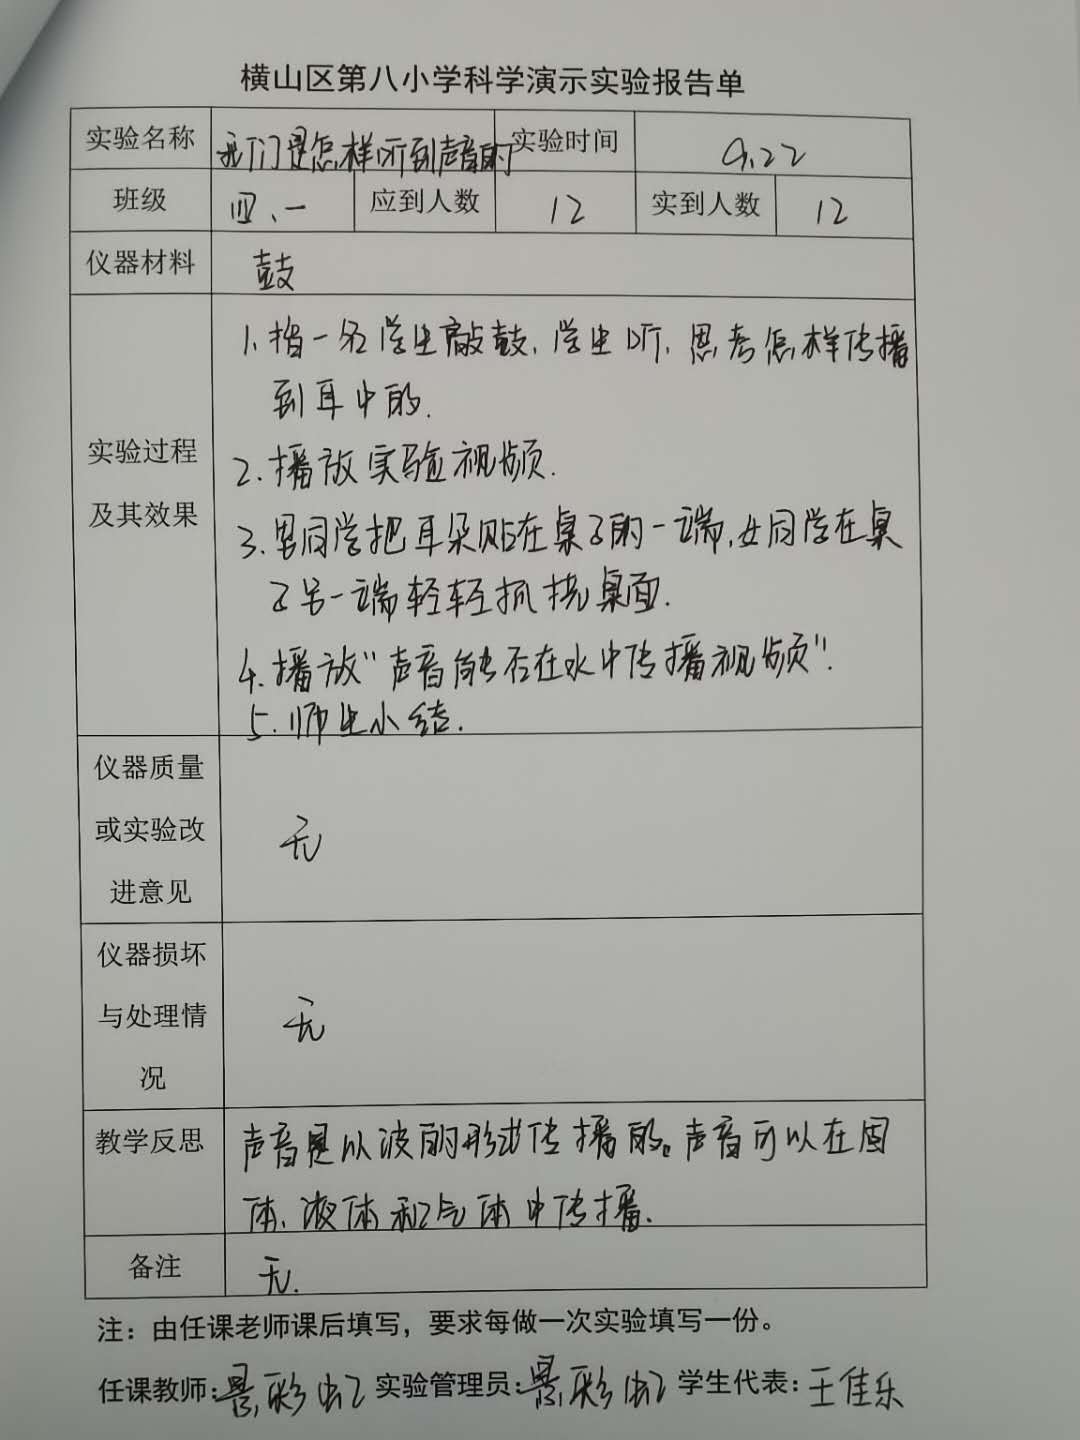 横山区第八小学科学演示实验报告单
实验名称 我们是怎样听到声音的 实验时间 9.22
班级 四、一 应到人数 12 实到人数 12
仪器材料 鼓
实验过程及其效果
1. 指一名学生敲鼓, 学生听, 思考怎样传播
到耳中的.
2. 播放实验视频.
3. 男同学把耳朵贴在桌子的一端, 女同学在桌
子另一端轻轻抓挠桌面.
4. 播放“声音能否在水中传播视频”.
5. 师生小结.
仪器质量
或实验改
进意见
无
仪器损坏
与处理情
况
无
教学反思
声音是以波的形式传播的。声音可以在固
体、液体和气体中传播.
备注 无.
注：由任课老师课后填写，要求每做一次实验填写一份。
任课教师: 景彩虹 实验管理员: 景彩虹 学生代表: 王佳乐